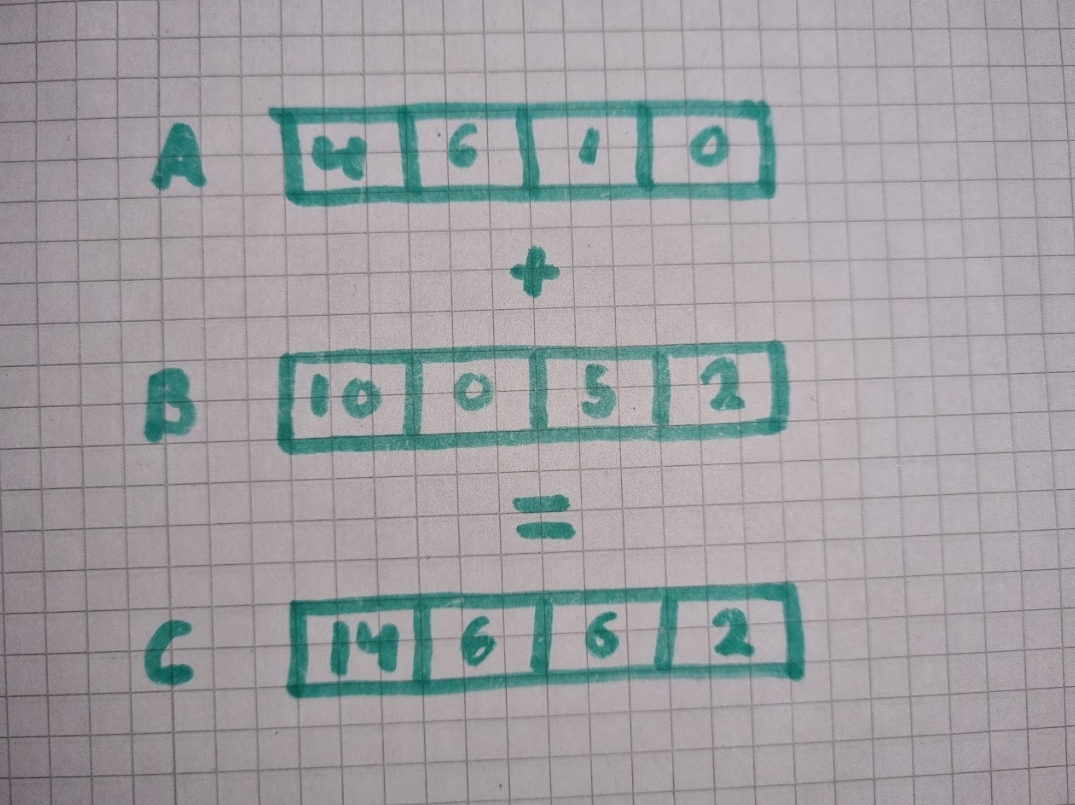 A 4 6 1 0
+
B 10 0 5 2
=
C 14 6 6 2